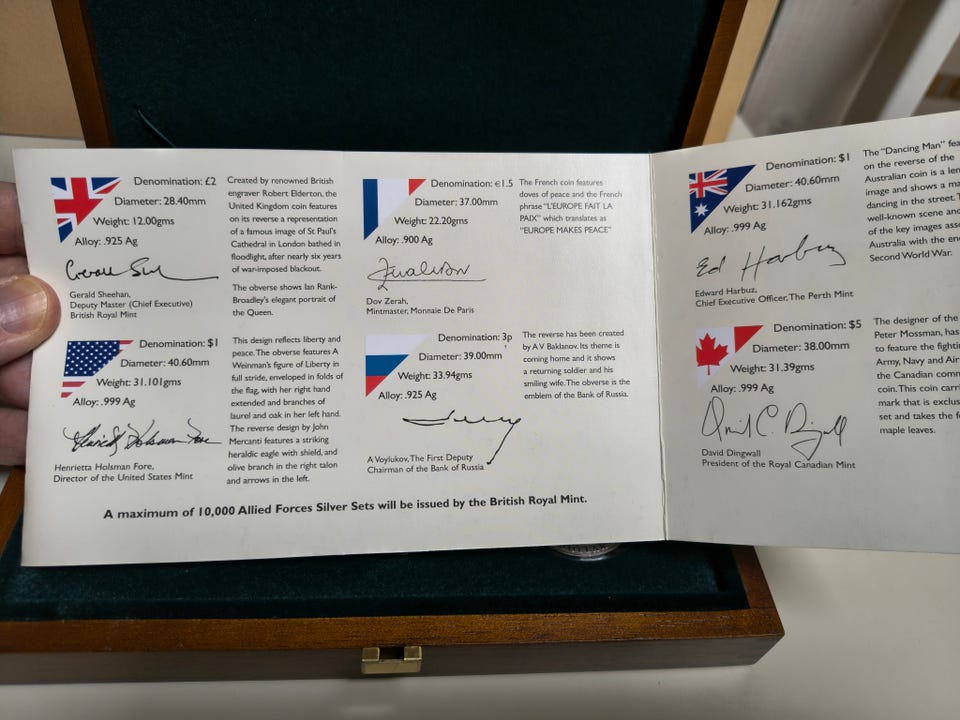 Denomination: £2
Diameter: 28.40mm
Weight: 12.00gms
Alloy: .925 Ag
Gerald Sheehan,
Deputy Master (Chief Executive)
British Royal Mint
Created by renowned British
engraver Robert Elderton, the
United Kingdom coin features
on its reverse a representation
of a famous image of St Paul's
Cathedral in London bathed in
floodlight, after nearly six years
of war-imposed blackout.
The obverse shows Ian Rank-
Broadley's elegant portrait of
the Queen.
Denomination: $1
Diameter: 40.60mm
Weight: 31.101gms
Alloy: .999 Ag
Henrietta Holsman Fore
Henrietta Holsman Fore,
Director of the United States Mint
This design reflects liberty and
peace. The obverse features A
Weinman's figure of Liberty in
full stride, enveloped in folds of
the flag, with her right hand
extended and branches of
laurel and oak in her left hand.
The reverse design by John
Mercanti features a striking
heraldic eagle with shield, and
olive branch in the right talon
and arrows in the left.
Denomination: €1.5
Diameter: 37.00mm
Weight: 22.20gms
Alloy: .900 Ag
Dov Zerah,
Mintmaster, Monnaie De Paris
The French coin features
doves of peace and the French
phrase "L'EUROPE FAIT LA
PAIX" which translates as
"EUROPE MAKES PEACE"
Denomination: 3p
Diameter: 39.00mm
Weight: 33.94gms
Alloy: .925 Ag
A Voylukov, The First Deputy
Chairman of the Bank of Russia
The reverse has been created
by A V Baklanov. Its theme is
coming home and it shows
a returning soldier and his
smiling wife. The obverse is the
emblem of the Bank of Russia.
A maximum of 10,000 Allied Forces Silver Sets will be issued by the British Royal Mint.
Denomination: $1
Diameter: 40.60mm
Weight: 31.162gms
Alloy: .999 Ag
Ed Harbuz
Edward Harbuz,
Chief Executive Officer, The Perth Mint
The "Dancing Man" fea
on the reverse of the
Australian coin is a
image and shows a ma
dancing in the street.
well-known scene and
of the key images asso
Australia with the en
Second World War.
Denomination: $5
Diameter: 38.00mm
Weight: 31.39gms
Alloy: .999 Ag
David C. Dingwall
David Dingwall
President of the Royal Canadian Mint
The designer of the
Peter Mossman, has
to feature the fighti
Army, Navy and Air
the Canadian comm
coin. This coin carr
mark that is exclus
set and takes the fo
maple leaves.